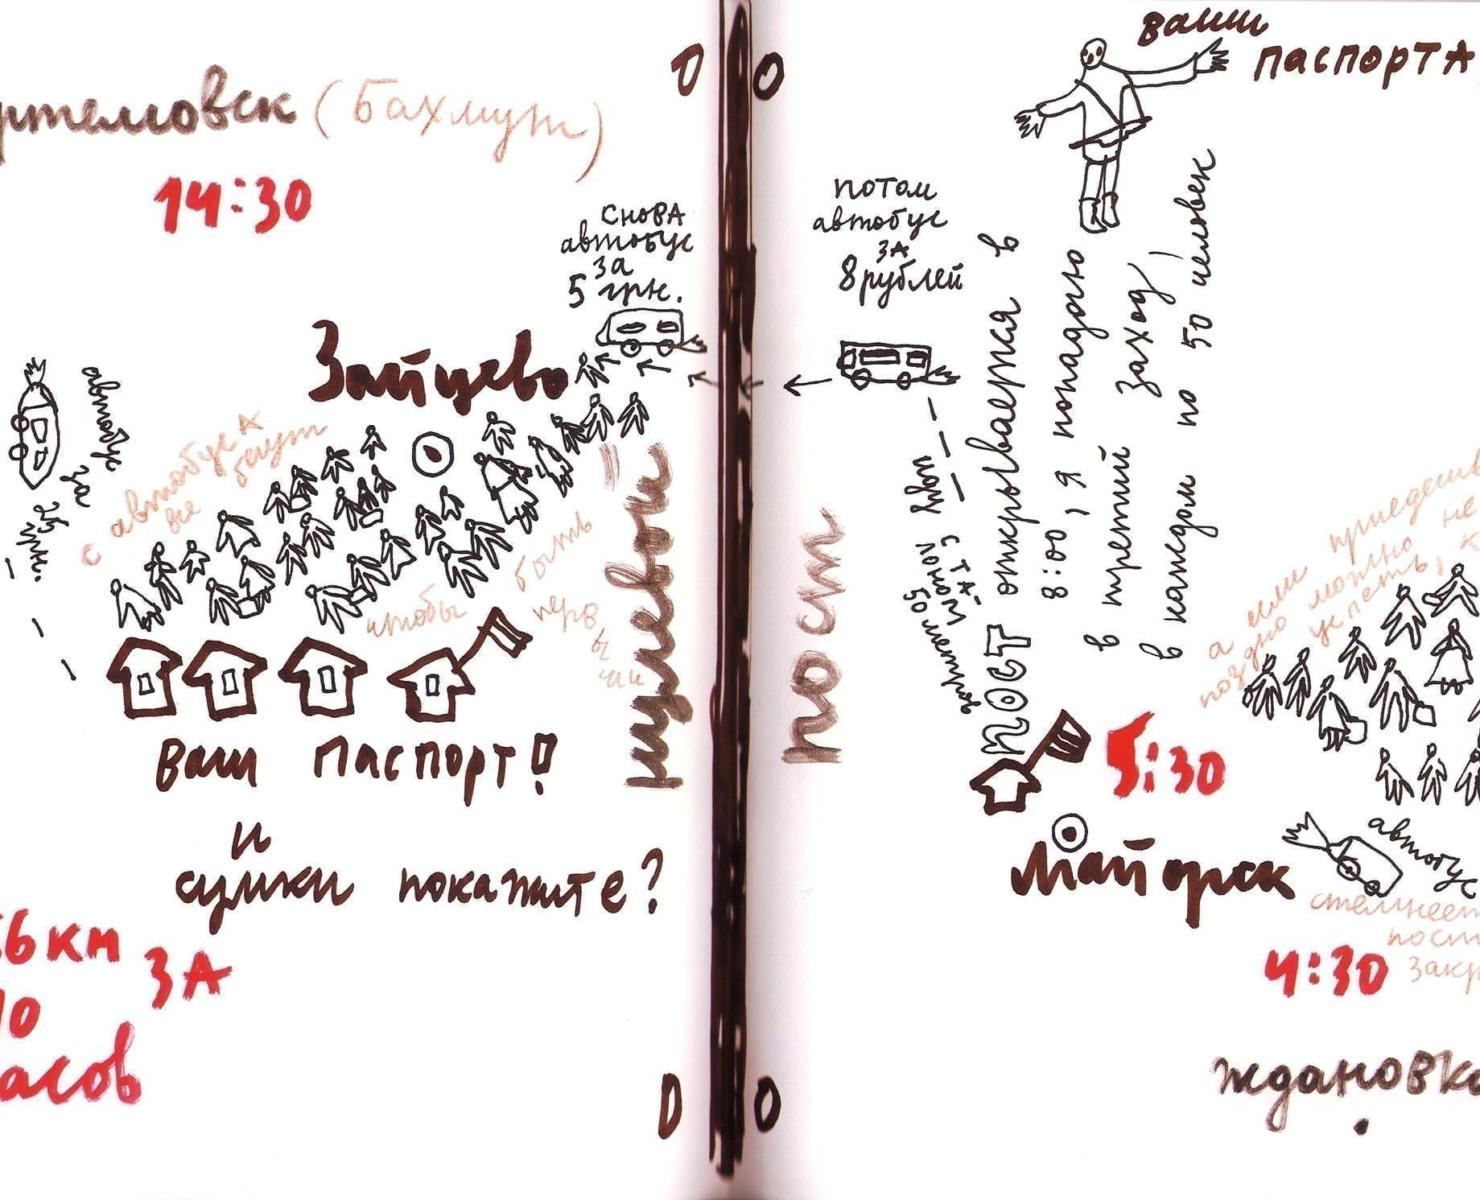 ртемовск (Бахмут)
14:30
снова
автобус
за
5 грн.
Зайцево
автобус
за
грн.
с автобуса
все
бегут
чтобы
быть
первы
ми
Ваш паспорт!
и
сумки покажите?
56 км
за
10
асов
нулевой
пост
0 0
0 0
ваши
паспорта
потом
автобус
за
8 рублей
идти с та-
лоном
50 метров
пост открывается в
8:00, я попадаю
в третий заход,
в каждом по 50 человек
5:30
Майорск
автобус
4:30
темнеет
пост
закр
а если приедешь
поздно можно не
успеть, к
Ждановка